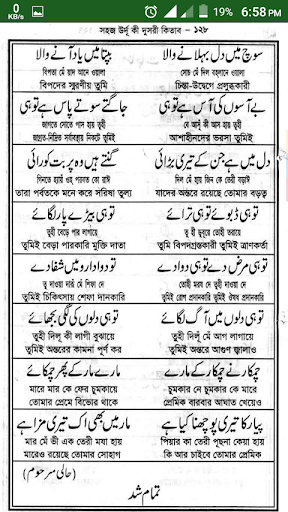 0
KB/s
19% 6:58 PM
সহজ উর্দু কী দুসরী কিতাব – ১২৮
سوچ میں دل بہلانے والے
সোচ মেঁ দিল বহলানে ওয়ালা
চিন্তা-উদ্বেগে প্রলুব্ধকারী
بپتا میں یاد آنے والے
বিপতা মেঁ য়াদ আনে ওয়ালা
বিপদের স্মরণীয় তুমি
بے آسوں کی آس ہے تو ہی
বে আসূঁ কী আস হায় তুহী
আশাহীনদের ভরসা তুমিই
جاگتے سوتے پاس ہے تو ہی
জাগতে সোতে পাস হায় তুহী
জাগ্রত-নিদ্রিত সর্বাবস্থায় নিকটে তুমিই
دل میں ہے جن کے تیری بڑائی
দিল মেঁ হায় জিন কে তেরী বড়াই
যাদের অন্তরে রয়েছে তোমার বড়ত্ব
گنتے ہیں وہ پربت کو رائی
গিনতে হ্যায়ঁ ওহ্ পরবত কো রাঈ
তারা পর্বতকে মনে করে সরিষা তুল্য
تو ہی ڈبوئے تو ہی ترائے
তূ হী ডুবূয়ে তূহী তরায়ে
তুমি বিপদগ্রস্তকারী তুমিই ত্রাণকর্তা
تو ہی بیڑے پار لگائے
তূহী বেড়ে পার লাগায়ে
তুমিই বেড়া পারকারি মুক্তি দাতা
تو ہی مرض دے تو ہی دوا دے
তূহী মরয দে তূহী দাওয়া দে
তুমিই রোগ প্রদানকারী তুমিই ঔষধ প্রদানকারি
تو دوا دارو میں شفا دے
তূ দাওয়া দারূ মেঁ শিফা দে
তুমিই চিকিৎসায় শেফা দানকারি
تو ہی دلوں میں آگ لگائے
তূহী দিলূঁ মেঁ আগ লাগায়ে
তুমিই অন্তরে আগুণ জ্বালাও
تو ہی دلوں کی لگی بجھائے
তূহী দিলূঁ কী লাগী বুঝায়ে
তুমিই অন্তরের কামনা পূর্ণ কর
چمکارنے چمکارنے کے مارے
চুমকার নে চুমকার কে মারে
প্রেমিক বারবার আঘাত খেয়েও
مارے مار کے پھر چمکائے
মারে মার কে ফের চুমকায়ে
তোমার প্রেমে বিভোর থাকে
پیار کا تیری پوچھنا کیا ہے
পিয়ার কা তেরী পূছনা কেয়া হায়
কি আর চাইবে তোমার প্রেমিক
مار میں بھی اک تیری مزا ہے
মার মেঁ ভী এক তেরী মযা হায়
মারেও রয়েছে তোমার সোহাগ
(حالی مرحوم)
تمام شد